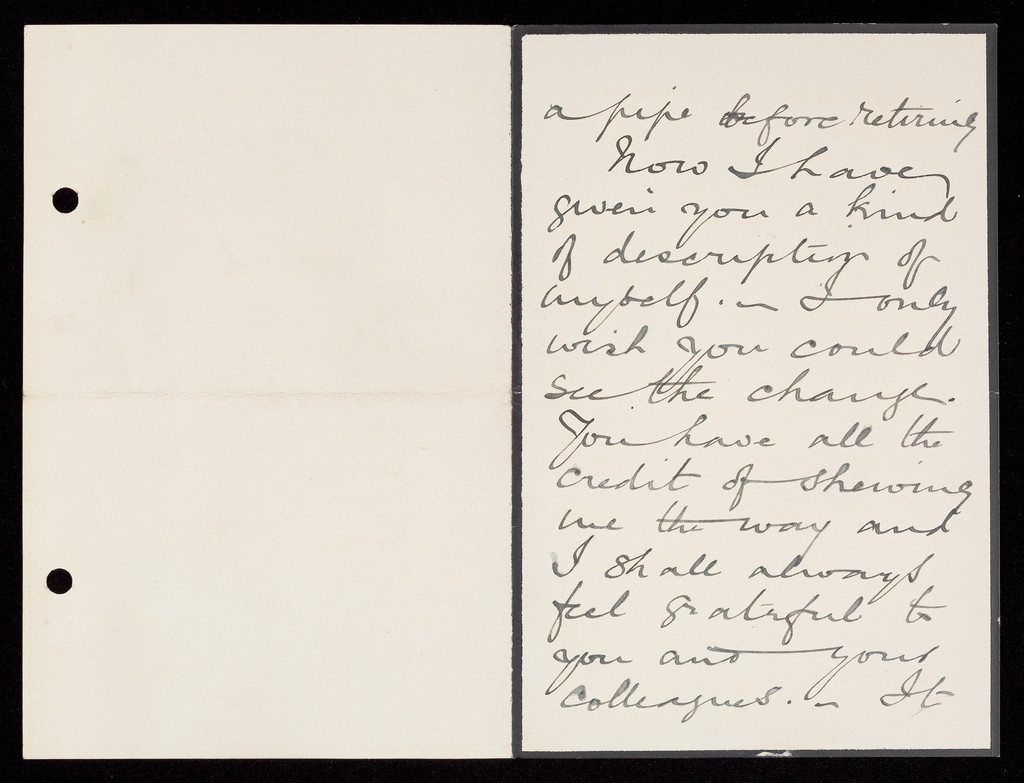 a pipe before retiring
Now I have
given you a kind
of description of
myself. – I only
wish you could
see the change.
You have all the
credit of shewing
me the way and
I shall always
feel grateful to
you and your
colleagues. – It